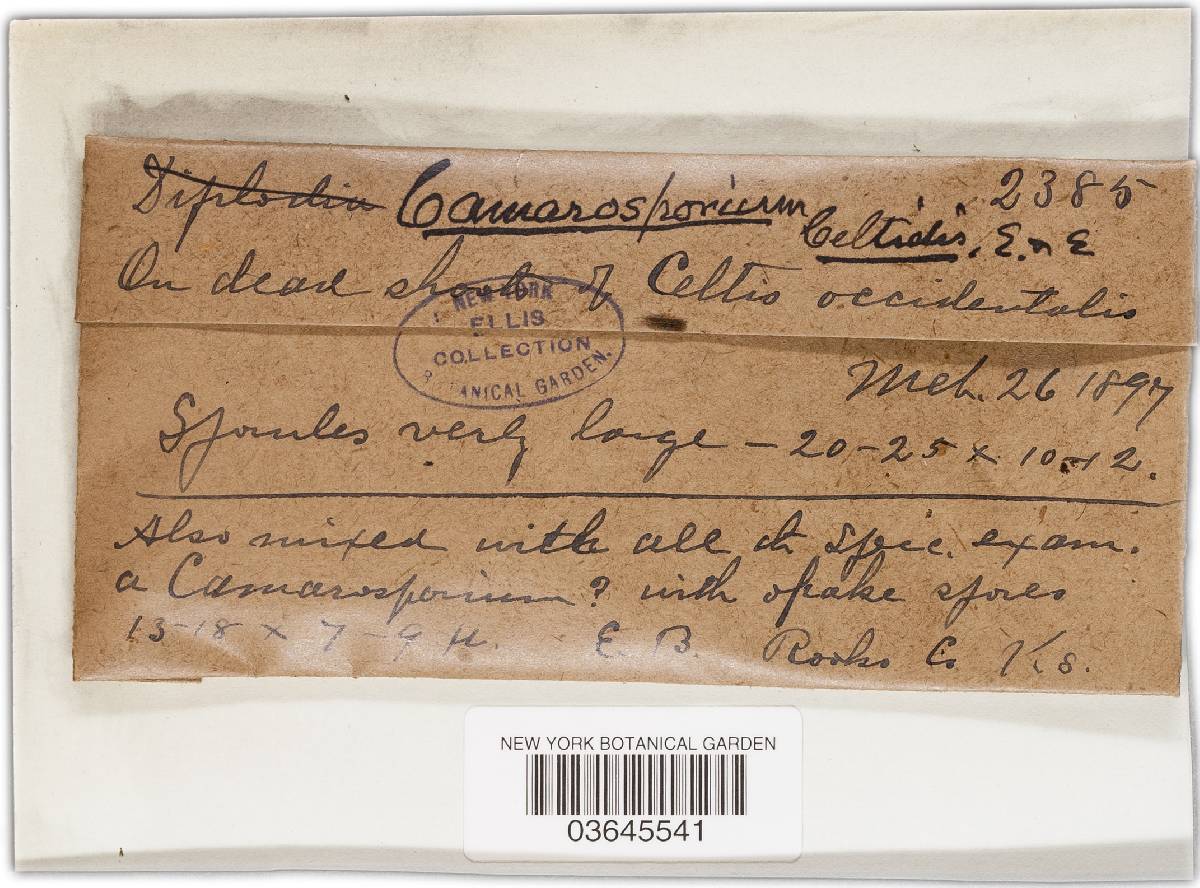 Diplodia Camarosporium 2385
Celtidis, E. & E
On dead shoots of Celtis occidentalis
NEW YORK
ELLIS
COLLECTION
BOTANICAL GARDEN.
Mch. 26 1897
Sporules very large – 20-25 x 10-12.
Also mixed with all spec. exam.
a Camarosporium? with opake spores
13-18 x 7-9 µ. E. B. Rooks Co Ks.
NEW YORK BOTANICAL GARDEN
03645541